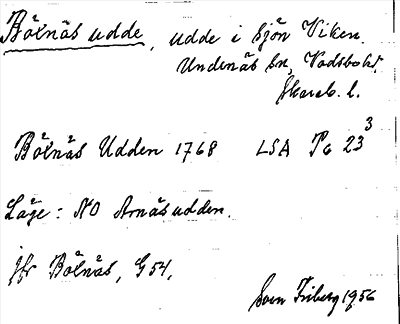 Bölnäs udde, udde i sjön Viken.
Undenäs sn, Vadsbo hd.
Skarab. l.
Bölnäs Udden 1768 LSA P6 23³
Läge: NO Arnäsudden.
Jfr Bölnäs, G 54.
Sven Friberg 1956